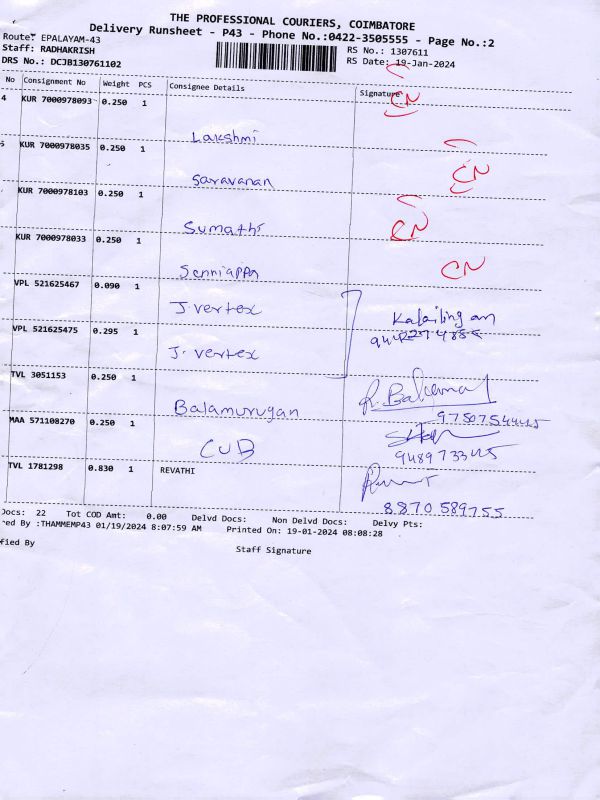 THE PROFESSIONAL COURIERS, COIMBATORE
Delivery Runsheet - P43 - Phone No.:0422-3505555 - Page No.:2
Route: EPALAYAM-43
Staff: RADHAKRISH
RS No.: 1307611
DRS No.: DCJB130761102
RS Date: 19-Jan-2024
No Consignment No Weight PCS Consignee Details Signature
4 KUR 7000978093 0.250 1 CN
Lakshmi
5 KUR 7000978035 0.250 1
Saravanan CN
KUR 7000978103 0.250 1
Sumathi CN
KUR 7000978033 0.250 1
Senniappa CN
VPL 521625467 0.090 1
J. vertex Kalailingan
VPL 521625475 0.295 1
J. vertex
TVL 3051153 0.250 1
Balamurugan
MAA 571108270 0.250 1
CUB
TVL 1781298 0.830 1 REVATHI
8870589755
Docs: 22 Tot COD Amt: 0.00 Delvd Docs: Non Delvd Docs: Delvy Pts:
ed By :THAMMEMP43 01/19/2024 8:07:59 AM Printed On: 19-01-2024 08:08:28
fied By
Staff Signature